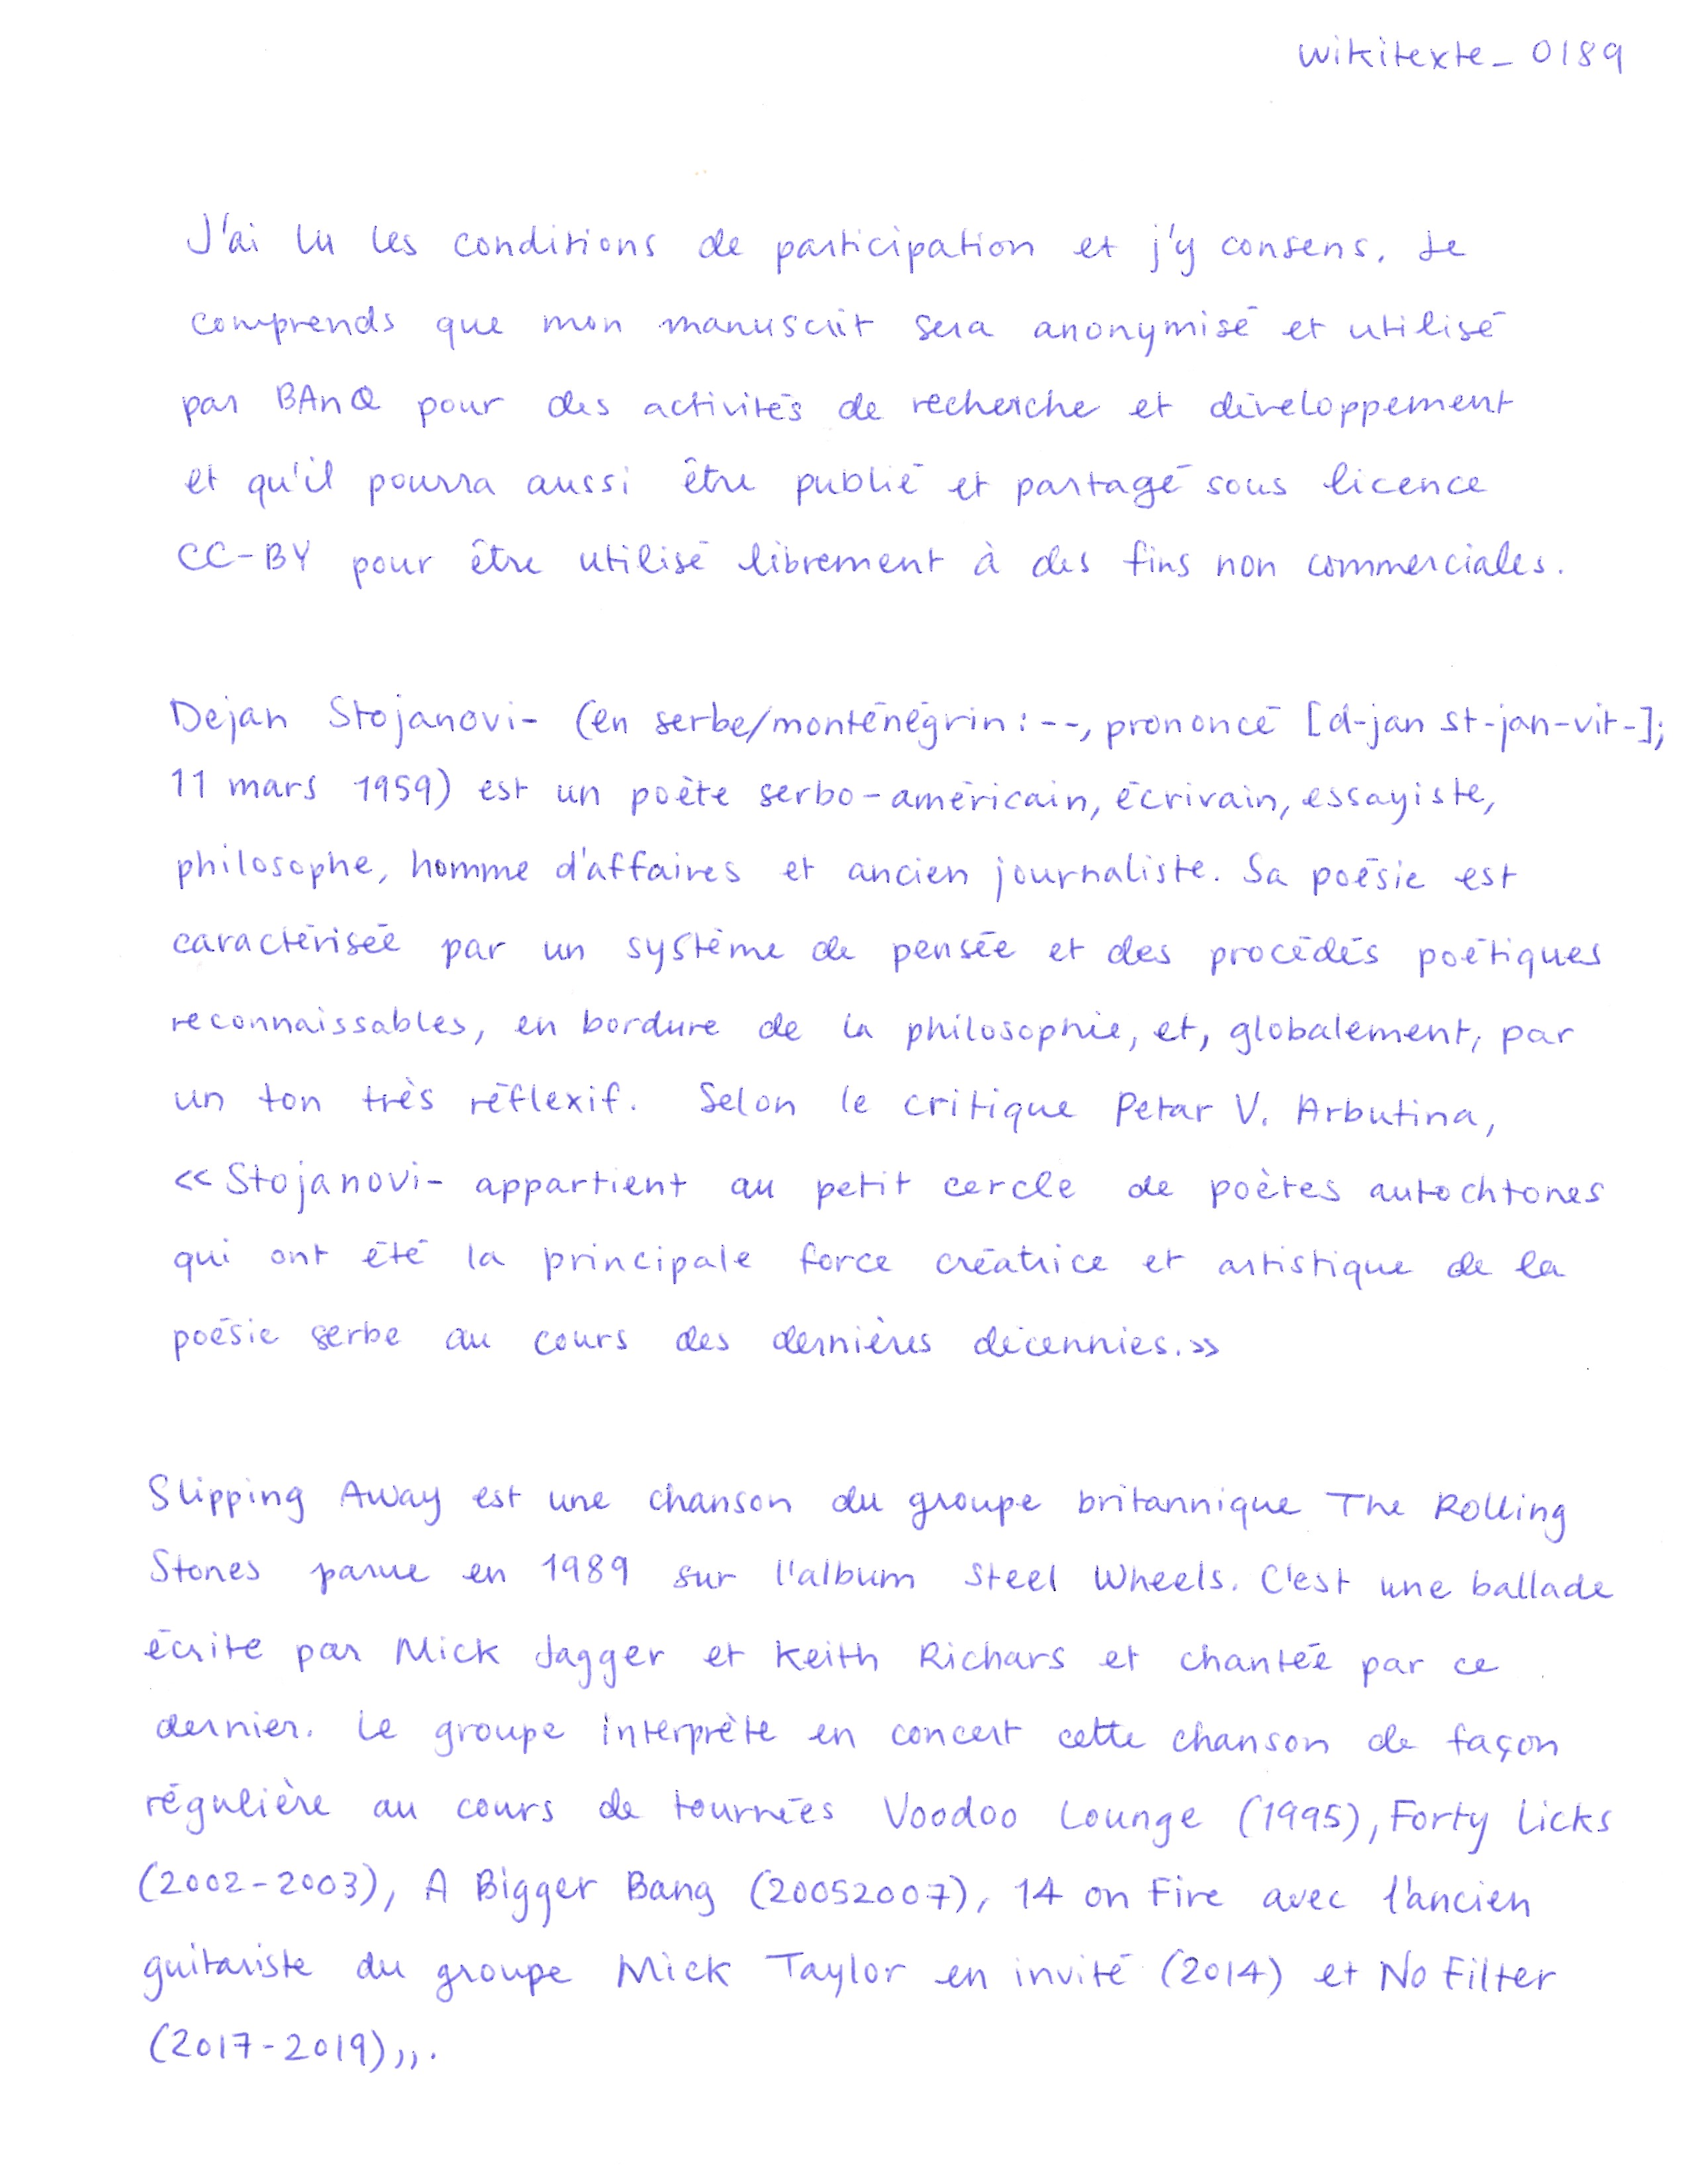 wikitexte_0189
J'ai lu les conditions de participation et j'y consens. Je
comprends que mon manuscrit sera anonymisé et utilisé
par BAnQ pour des activités de recherche et développement
et qu'il pourra aussi être publié et partagé sous licence
CC-BY pour être utilisé librement à des fins non commerciales.
Dejan Stojanovi- (en serbe/monténégrin : --, prononcé [d-jan st-jan-vit-];
11 mars 1959) est un poète serbo-américain, écrivain, essayiste,
philosophe, homme d'affaires et ancien journaliste. Sa poésie est
caractérisée par un système de pensée et des procédés poétiques
reconnaissables, en bordure de la philosophie, et, globalement, par
un ton très réflexif. Selon le critique Petar V. Arbutina,
<< Stojanovi- appartient au petit cercle de poètes autochtones
qui ont été la principale force créatrice et artistique de la
poésie serbe au cours des dernières décennies. >>
Slipping Away est une chanson du groupe britannique The Rolling
Stones parue en 1989 sur l'album Steel Wheels. C'est une ballade
écrite par Mick Jagger et Keith Richars et chantée par ce
dernier. Le groupe interprète en concert cette chanson de façon
régulière au cours de tournées Voodoo Lounge (1995), Forty Licks
(2002-2003), A Bigger Bang (20052007), 14 on Fire avec l'ancien
guitariste du groupe Mick Taylor en invité (2014) et No Filter
(2017-2019),,.